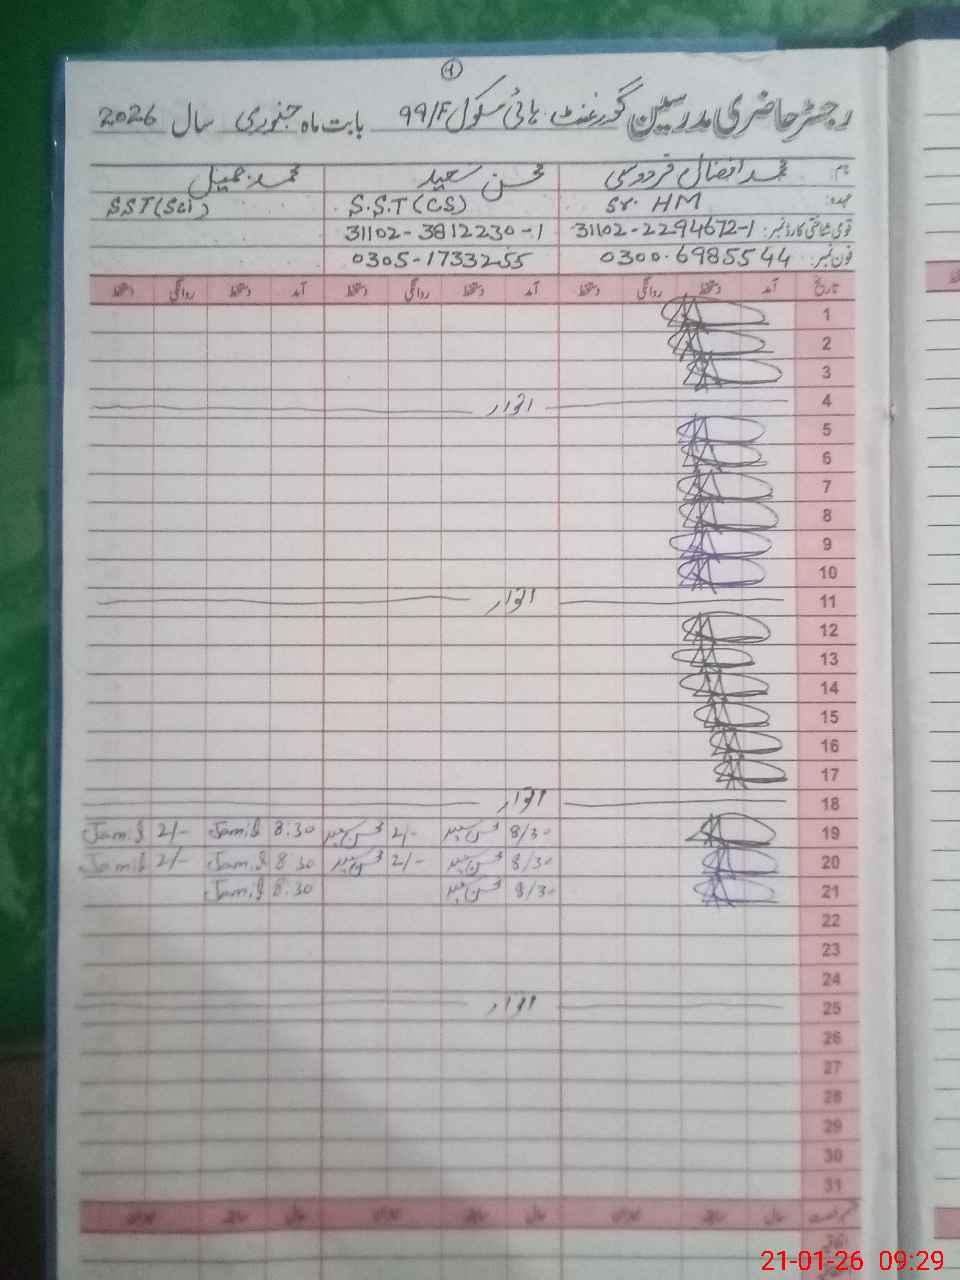 1
رجسٹر حاضری مدرسین گورنمنٹ ہائی سکول 99/F بابت ماہ جنوری سال 2026
نام: محمد افضال فردوسی محسن سعید محمد جمیل
عہدہ: Sr. HM S.S.T (CS) S.S.T (Sci)
قومی شناختی کارڈ نمبر: 31102-2294672-1 31102-3812230-1
فون نمبر: 0300-6985544 0305-1733255
تاریخ آمد دستخط روانگی دستخط آمد دستخط روانگی دستخط آمد دستخط روانگی دستخط
1
2
3
4 اتوار
5
6
7
8
9
10
11 اتوار
12
13
14
15
16
17
18 اتوار
19 8/30 محسن سعید 2/- محسن سعید 8:30 Jamil 2/- Jamil
20 8/30 محسن سعید 2/- محسن سعید 8:30 Jamil 2/- Jamil
21 8/30 محسن سعید 8:30 Jamil
22
23
24
25 اتوار
26
27
28
29
30
31
21-01-26 09:29